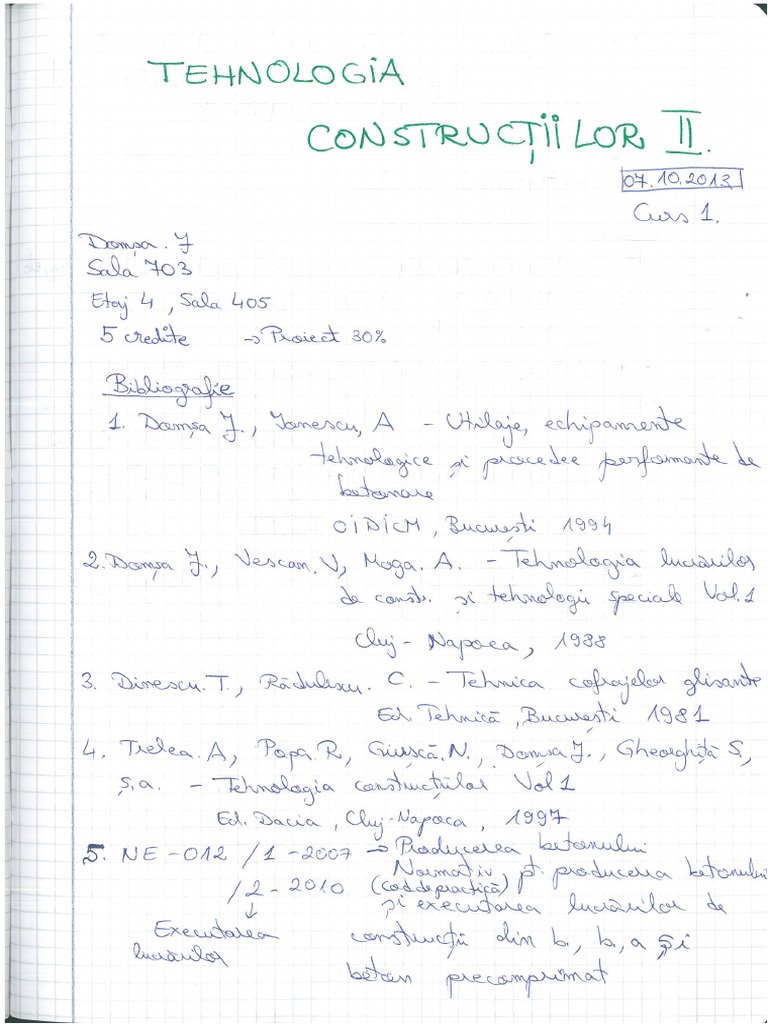 TEHNOLOGIA
CONSTRUCȚIILOR II.
07.10.2013
Curs 1.
Domșa. J
Sala 703
Etaj 4, Sala 405
5 credite → Proiect 30%
Bibliografie
1. Domșa J., Ionescu, A – Utilaje, echipamente
tehnologice și procedee performante de
betonare
OiDiCM, București 1994
2. Domșa J., Vescan. V, Moga. A. – Tehnologia lucrărilor
de constr. și tehnologii speciale Vol. 1
Cluj-Napoca, 1988
3. Dinescu. T., Rădulescu. C. – Tehnica cofrajelor glisante
Ed. Tehnică, București 1981
4. Trelea. A, Popa. R, Giușcă. N., Domșa J., Gheorghiță S,
ș.a. – Tehnologia construcțiilor Vol 1
Ed. Dacia, Cluj-Napoca, 1997
5. NE-012 /1-2007 → Producerea betonului
Normativ pt. producerea betonului
/2-2010 (cod de practică)
și executarea lucrărilor de
↓
Executarea construcții din b, b,a și
lucrărilor
beton precomprimat